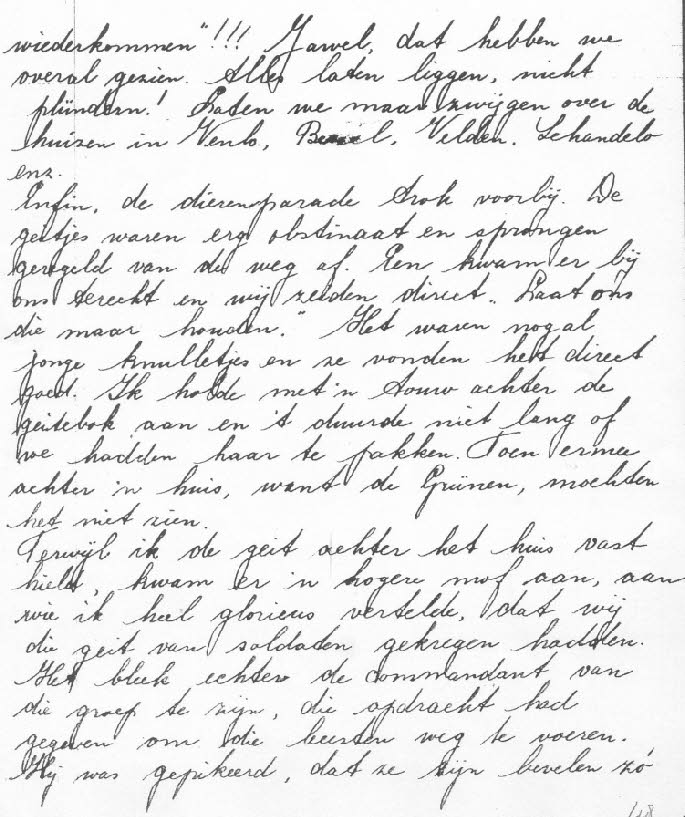 wiederkommen"!!! Jawel, dat hebben we
overal gezien. Alles laten liggen, nicht
plündern! Laten we maar zwijgen over de
huizen in Venlo, Velden. Schandelo
enz.
Enfin, de dierenparade trok voorbij. De
geitjes waren erg obstinaat en sprongen
geregeld van de weg af. Een kwam er bij
ons terecht en wij zeiden direct „Laat ons
die maar houden." Het waren nogal
jonge knulletjes en ze vonden het direct
goed. Ik holde met 'n touw achter de
geitebok aan en 't duurde niet lang of
we hadden haar te pakken. Toen ermee
achter 'n huis, want de Grünen, mochten
het niet zien.
Terwijl ik de geit achter het huis vast
hield, kwam er 'n hogere mof aan, aan
wie ik heel glorieus vertelde, dat wij
die geit van soldaten gekregen hadden.
Het bleek echter de commandant van
die groep te zijn, die opdracht had
gegeven om die beesten weg te voeren.
Hij was gepikeerd, dat ze zijn bevelen zó